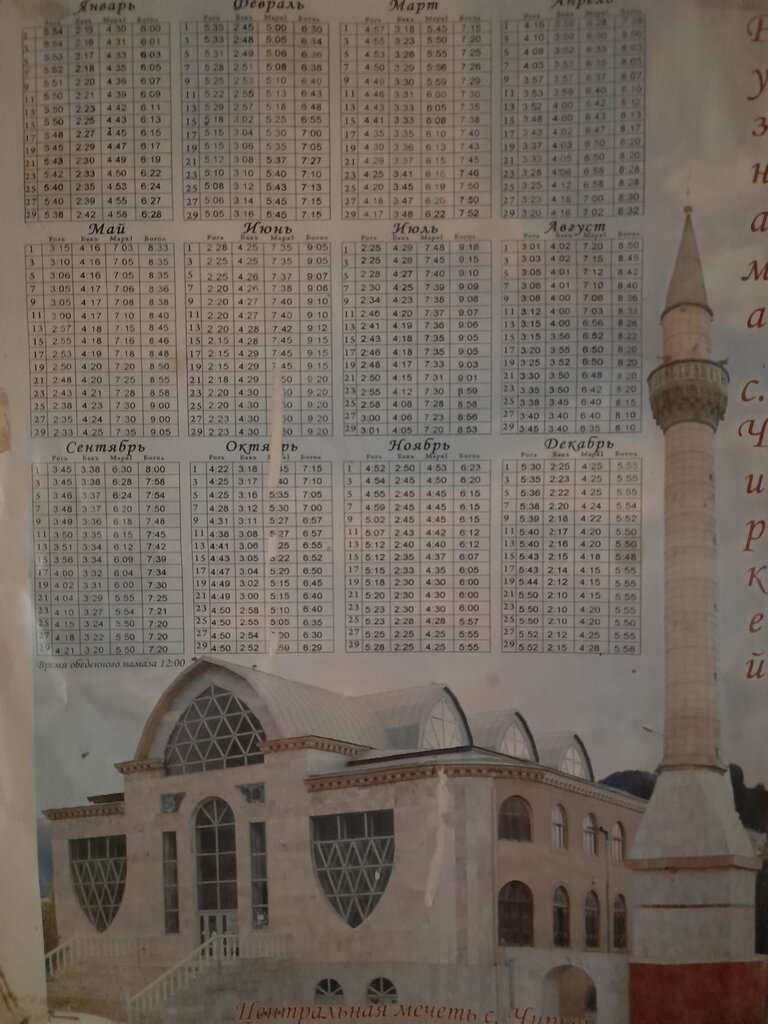 Январь
5:54 2:15 4:30 6:00
5:54 2:16 4:31 6:01
5:53 2:17 4:33 6:03
5:52 2:18 4:35 6:05
5:51 2:20 4:36 6:07
11 5:50 2:21 4:39 6:09
13 5:50 2:23 4:42 6:11
15 5:50 2:25 4:43 6:13
17 5:48 2:27 4:45 6:15
19 5:45 2:29 4:47 6:17
21 5:43 2:30 4:49 6:19
23 5:42 2:33 4:50 6:22
25 5:40 2:35 4:52 6:24
27 5:40 2:38 4:55 6:27
29 5:38 2:42 4:58 6:28
Февраль
1 5:35 2:45 5:00 6:30
3 5:33 2:48 5:05 6:34
5 5:31 2:49 5:06 6:36
7 5:28 2:51 5:08 6:38
9 5:25 2:53 5:10 6:40
11 5:22 2:55 5:13 6:43
13 5:29 2:57 5:18 6:48
15 5:18 3:02 5:25 6:55
17 5:15 3:04 5:30 7:00
19 5:15 3:06 5:35 7:05
21 5:12 3:08 5:37 7:27
23 5:10 3:10 5:40 7:10
25 5:08 3:12 5:43 7:13
27 5:06 3:14 5:45 7:15
29 5:05 3:16 5:45 7:15
Март
1 4:57 3:18 5:45 7:15
3 4:55 3:23 5:50 7:20
5 4:53 3:26 5:55 7:25
7 4:50 2:29 5:56 7:26
9 4:49 3:30 5:59 7:29
11 4:46 3:31 6:00 7:30
13 4:43 3:33 6:05 7:35
15 4:41 3:33 6:08 7:38
17 4:35 3:35 6:10 7:40
19 4:30 3:36 6:13 7:43
21 4:29 3:37 6:15 7:45
23 4:25 3:41 6:16 7:46
25 4:20 3:45 6:19 7:50
27 4:18 3:47 6:20 7:50
29 4:17 3:48 6:22 7:52
Апрель
1 4:15 3:50 6:28 7:58
3 4:10 3:50 6:30 8:00
5 4:05 3:52 6:33 8:03
7 4:03 3:53 6:35 8:05
9 3:57 3:57 6:37 8:07
11 3:53 3:58 6:40 8:10
13 3:52 4:00 6:42 8:12
15 3:48 4:00 6:43 8:13
17 3:43 4:02 6:47 8:17
19 3:37 4:03 6:50 8:20
21 3:33 4:05 6:50 8:20
23 3:28 4:08 6:58 8:28
25 3:25 4:12 6:58 8:28
27 3:23 4:16 7:00 8:30
29 3:20 4:16 7:02 8:32
Май
Рогь Бакъ МаркI Богол
1 3:15 4:16 7:03 8:33
3 3:10 4:16 7:05 8:35
5 3:06 4:15 7:05 8:35
7 3:05 4:17 7:06 8:36
9 3:05 4:17 7:08 8:38
11 3:00 4:17 7:10 8:40
13 2:57 4:18 7:15 8:45
15 2:55 4:18 7:16 8:46
17 2:53 4:19 7:18 8:48
19 2:50 4:20 7:20 8:50
21 2:48 4:20 7:25 8:55
23 2:43 4:21 7:28 8:58
25 2:38 4:23 7:30 9:00
27 2:35 4:24 7:30 9:00
29 2:33 4:25 7:35 9:05
Июнь
Рогь Бакъ МаркI Богол
1 2:28 4:25 7:35 9:05
3 2:25 4:25 7:35 9:05
5 2:25 4:26 7:37 9:07
7 2:20 4:26 7:38 9:08
9 2:20 4:27 7:40 9:10
11 2:20 4:27 7:40 9:10
13 2:20 4:28 7:42 9:12
15 2:15 4:28 7:45 9:15
17 2:15 4:29 7:45 9:15
19 2:15 4:29 7:45 9:15
21 2:18 4:29 50 9:20
23 2:20 4:30 50 9:20
25 2:20 4:30 50 9:20
27 2:23 4:29 50 9:20
29 2:23 4:30 50 9:20
Июль
Рогь Бакъ МаркI Богол
1 2:25 4:29 7:48 9:18
3 2:25 4:28 7:45 9:15
5 2:28 4:27 7:40 9:10
7 2:30 4:25 7:39 9:09
9 2:34 4:23 7:38 9:08
11 2:46 4:20 7:37 9:07
13 2:41 4:19 7:36 9:06
15 2:43 4:18 7:35 9:05
17 2:46 4:18 7:35 9:05
19 2:48 4:17 7:33 9:03
21 2:50 4:15 7:31 9:01
23 2:55 4:12 7:30 8:59
25 2:58 4:08 7:28 8:58
27 3:00 4:06 7:23 8:56
29 3:01 4:05 7:20 8:53
Август
Рогь Бакъ МаркI Богол
1 3:01 4:02 7:20 8:50
3 3:03 4:02 7:15 8:45
5 3:05 4:01 7:12 8:42
7 3:06 4:01 7:10 8:40
9 3:08 4:00 7:06 8:36
11 3:12 4:00 7:03 8:33
13 3:15 4:00 6:56 8:26
15 3:15 3:56 6:52 8:22
17 3:20 3:55 6:50 8:20
19 3:25 3:52 6:50 8:20
21 3:30 3:50 6:48 8:20
23 3:35 3:50 6:42 8:20
25 3:38 3:45 6:38 8:15
27 3:40 3:40 6:35 8:10
29 3:45 3:40 6:40 8:10
Сентябрь
Рогь Бакъ МаркI Богол
1 3:45 3:38 6:30 8:00
3 3:45 3:38 6:28 7:58
5 3:46 3:37 6:24 7:54
7 3:48 3:37 6:20 7:50
9 3:49 3:36 6:18 7:48
11 3:50 3:35 6:15 7:45
13 3:51 3:34 6:12 7:42
15 3:56 3:34 6:09 7:39
17 4:00 3:32 6:04 7:34
19 4:02 3:31 6:00 7:30
21 4:04 3:29 5:55 7:25
23 4:10 3:27 5:54 7:21
25 4:15 3:24 5:50 7:20
27 4:18 3:22 5:50 7:20
29 4:21 3:20 5:50 7:20
Октябрь
Рогь Бакъ МаркI Богол
1 4:22 3:18 45 7:15
3 4:25 3:17 40 7:10
5 4:25 3:16 5:35 7:05
7 4:28 3:12 5:30 7:00
9 4:31 3:11 5:27 6:57
11 4:38 3:08 5:27 6:57
13 4:41 3:06 25 6:55
15 4:43 3:05 5:22 6:52
17 4:47 3:04 5:20 6:50
19 4:49 3:02 5:15 6:45
21 4:49 3:00 5:15 6:40
23 4:50 2:58 5:10 6:40
25 4:50 2:55 5:05 6:35
27 4:50 2:54 00 6:30
29 4:50 2:52 59 6:29
Ноябрь
Рогь Бакъ МаркI Богол
1 4:52 2:50 4:53 6:23
3 4:54 2:45 4:50 6:20
5 4:55 2:45 4:45 6:15
7 4:59 2:45 4:45 6:15
9 5:02 2:45 4:45 6:15
11 5:07 2:43 4:42 6:12
13 5:12 2:40 4:40 6:12
15 5:12 2:35 4:37 6:07
17 5:15 2:33 4:35 6:05
19 5:18 2:30 4:30 6:00
21 5:20 2:30 4:30 6:00
23 5:23 2:30 4:30 6:00
25 5:23 2:28 4:28 5:57
27 5:25 2:25 4:25 5:55
29 5:28 2:25 4:25 5:55
Декабрь
Рогь Бакъ МаркI Богол
1 5:30 2:25 4:25 5:55
3 5:35 2:23 4:25 5:55
5 5:36 2:22 4:25 5:55
7 5:38 2:20 4:24 5:54
9 5:39 2:18 4:22 5:52
11 5:40 2:17 4:20 5:50
13 5:40 2:16 4:20 5:50
15 5:43 2:15 4:18 5:48
17 5:43 2:14 4:15 5:55
19 5:44 2:12 4:15 5:55
21 5:50 2:10 4:20 5:55
23 5:50 2:10 4:20 5:55
25 5:50 2:10 4:20 5:55
27 5:52 2:12 4:25 5:55
29 5:52 2:15 4:28 5:58
Время обеденного намаза 12:00
Рузнама с. Чиркей
Центральная мечеть с.